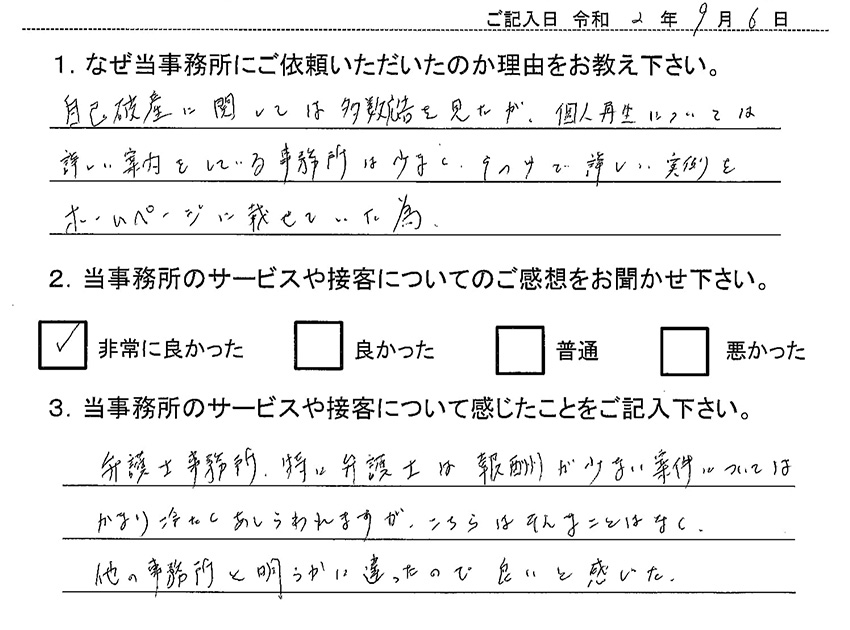 ご記入日 令和 2 年 9 月 6 日
1. なぜ当事務所にご依頼いただいたのか理由をお教え下さい。
自己破産に関しては多数広告を見たが、個人再生については
詳しい案内をしている事務所は少なく、その中で詳しい実例を
ホームページに載せていた為、
2. 当事務所のサービスや接客についてのご感想をお聞かせ下さい。
✓ 非常に良かった 良かった 普通 悪かった
3. 当事務所のサービスや接客について感じたことをご記入下さい。
弁護士事務所、特に弁護士は報酬が少ない案件については
かなり冷たくあしらわれますが、こちらはそんなことはなく、
他の事務所と明らかに違ったので良いと感じた。